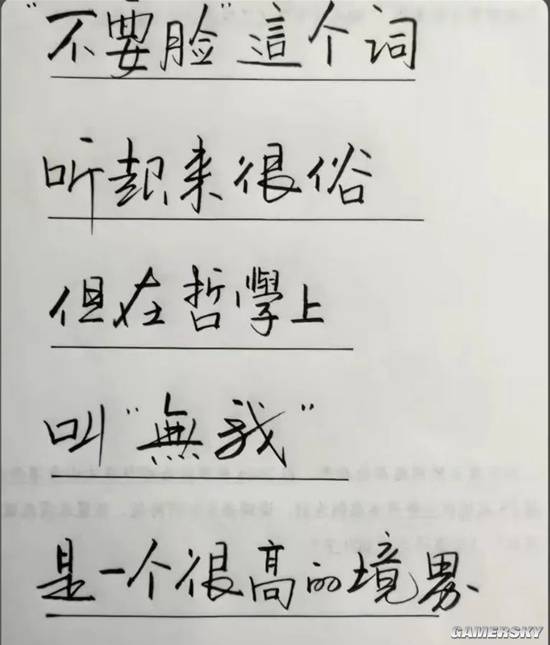 "不要脸"這个词
听起来很俗
但在哲學上
叫"無我"
是一个很高的境界.
GAMERSKY